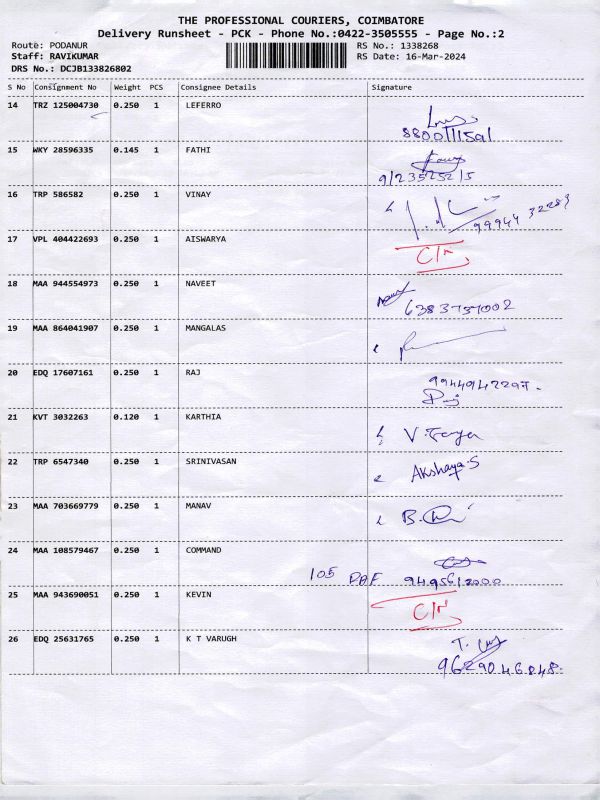 THE PROFESSIONAL COURIERS, COIMBATORE
Delivery Runsheet - PCK - Phone No.:0422-3505555 - Page No.:2
Route: PODANUR RS No.: 1338268
Staff: RAVIKUMAR RS Date: 16-Mar-2024
DRS No.: DCJB133826802
S No Consignment No Weight PCS Consignee Details Signature
14 TRZ 125004730 0.250 1 LEFERRO
8800111591
15 WKY 28596335 0.145 1 FATHI
9123525215
16 TRP 586582 0.250 1 VINAY
99944 32283
17 VPL 404422693 0.250 1 AISWARYA C/R
18 MAA 944554973 0.250 1 NAVEET
6383737002
19 MAA 864041907 0.250 1 MANGALAS
20 EDQ 17607161 0.250 1 RAJ 9944942297.
21 KVT 3032263 0.120 1 KARTHIA V.
22 TRP 6547340 0.250 1 SRINIVASAN Akshaya.S
23 MAA 703669779 0.250 1 MANAV B.
24 MAA 108579467 0.250 1 COMMAND
105 9495612000
25 MAA 943690051 0.250 1 KEVIN C/R
26 EDQ 25631765 0.250 1 K T VARUGH T.
9629046848.